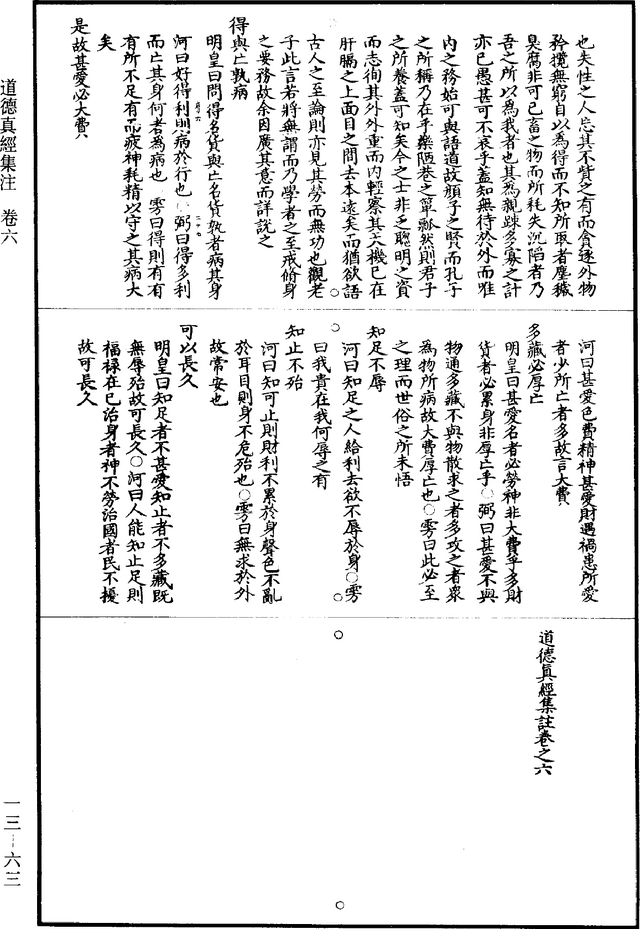 也失性之人忘其不貲之有而貪逐外物
矜攬無窮自以為得而不知所取者塵穢
臭腐非可已畜之物而所耗失沉陷者乃
吾之所以為我者也其為親踈多寡之計
亦已愚甚可不哀乎蓋知無待於外而唯
內之務始可與語道故顏子之賢而孔子
之所稱乃在乎樂陋巷之簞瓢然則君子
之所養蓋可知矣今之士非乏聰明之資
而志徇其外外重而內輕察其天機已在
肝膈之上面目之間去本遠矣而猶欲語
古人之至論則亦見其勞而無功也觀老
子此言若將無謂而乃學者之至戒脩身
之要務故余因廣其意而詳說之
得與亡孰病
明皇曰問得名貨與亡名貨孰者病其身
河曰好得利則病於行也○弼曰得多利
而亡其身何者為病也○雱曰得則有有
有所不足有而疲神耗精以守之其病大
矣
是故甚愛必大費
河曰甚愛色費精神甚愛財遇禍患所愛
者少所亡者多故言大費
多藏必厚亡
明皇曰甚愛名者必勞神非大費乎多財
貨者必累身非厚亡乎○弼曰甚愛不與
物通多藏不與物散求之者多攻之者眾
為物所病故大費厚亡也○雱曰此必至
之理而世俗之所未悟
知足不辱
河曰知足之人給利去欲不辱於身○雱
曰我貴在我何辱之有
知止不殆
河曰知可止則財利不累於身聲色不亂
於耳目則身不危殆也○雱曰無求於外
故常安也
可以長久
明皇曰知足者不甚愛知止者不多藏既
無辱殆故可長久○河曰人能知止足則
福祿在己治身者神不勞治國者民不擾
故可長久
道德真經集註卷之六
道德真經集注 卷六
一三—六三